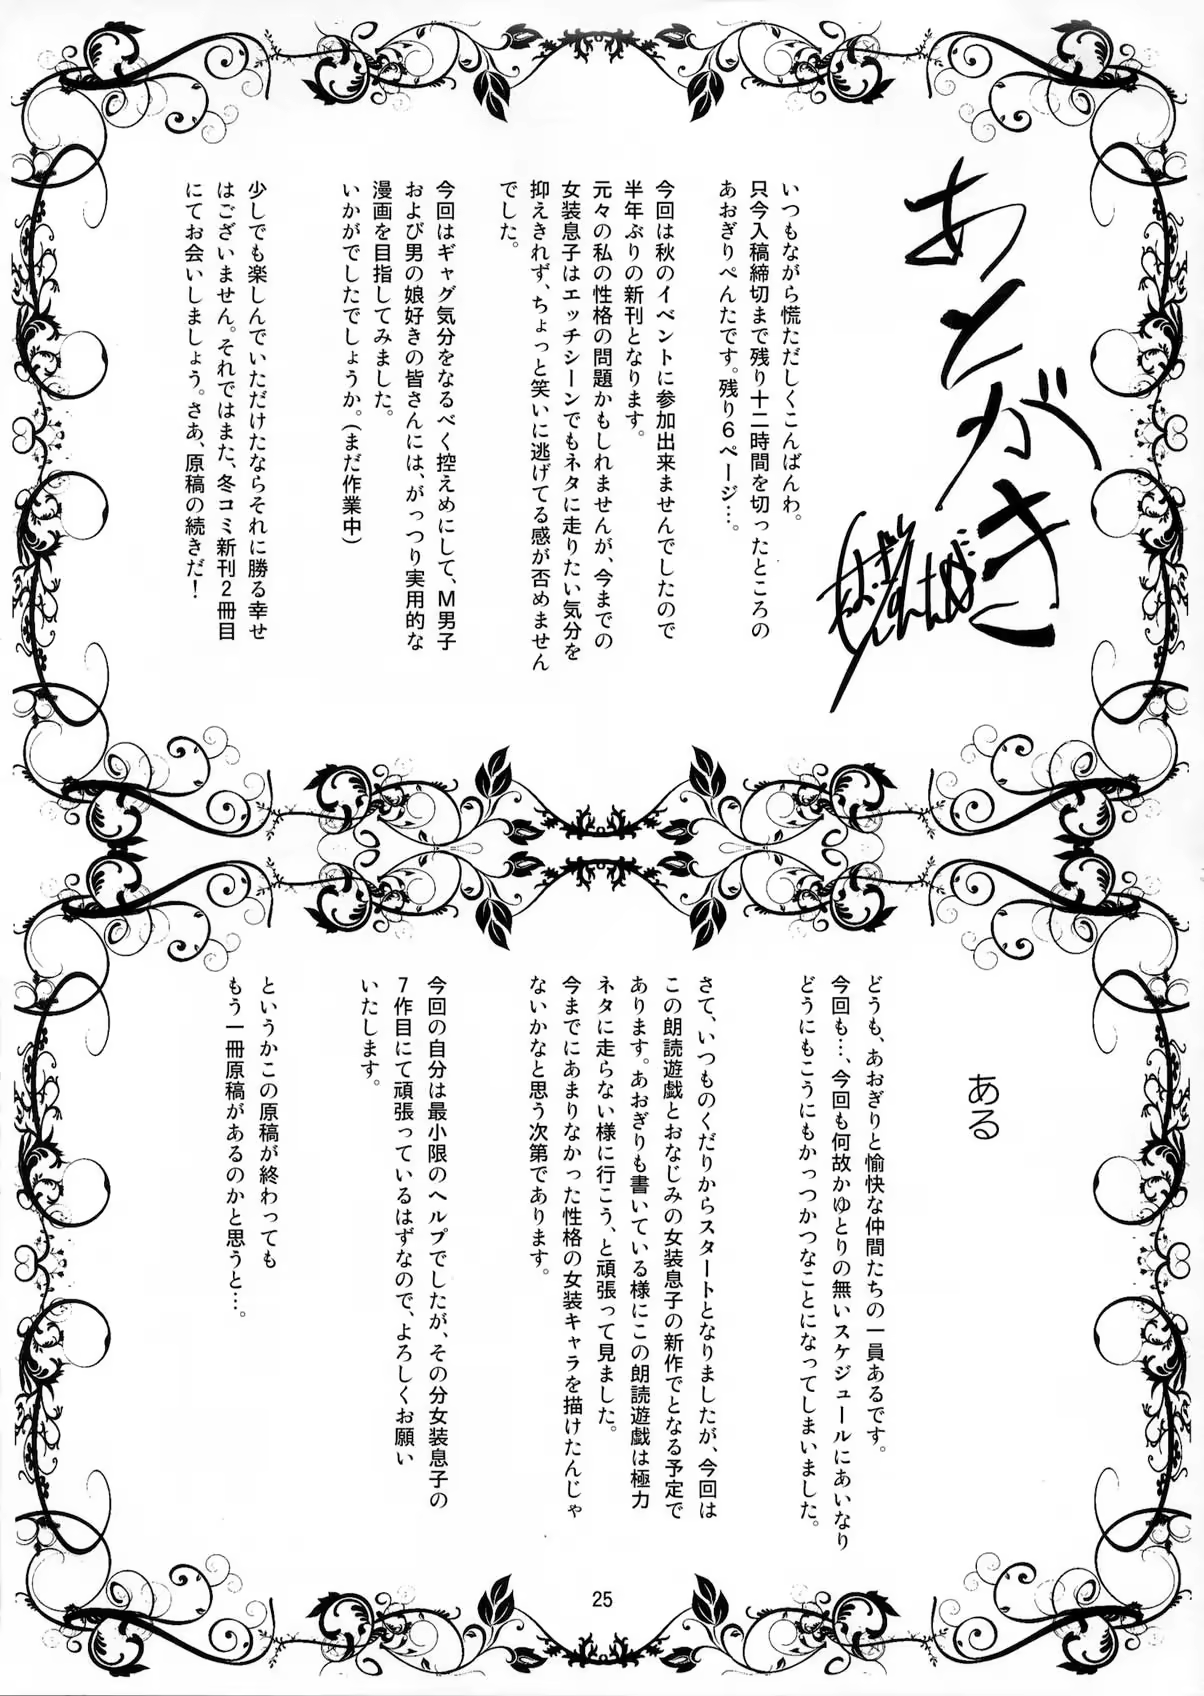 あとがき
あおぎりぺんた
いつもながら慌ただしくこんばんわ。
只今入稿締切まで残り十二時間を切ったところの
あおぎりぺんたです。残り6ページ…。
今回は秋のイベントに参加出来ませんでしたので
半年ぶりの新刊となります。
元々の私の性格の問題かもしれませんが、今までの
女装息子はエッチシーンでもネタに走りたい気分を
抑えきれず、ちょっと笑いに逃げてる感が否めません
でした。
今回はギャグ気分をなるべく控えめにして、M男子
および男の娘好きの皆さんには、がっつり実用的な
漫画を目指してみました。
いかがでしたでしょうか。(まだ作業中)
少しでも楽しんでいただけたならそれに勝る幸せ
はございません。それではまた、冬コミ新刊2冊目
にてお会いしましょう。さあ、原稿の続きだ！
ある
どうも、あおぎりと愉快な仲間たちの一員あるです。
今回も…、今回も何故かゆとりの無いスケジュールにあいなり
どうにもこうにもかっつかつなことになってしまいました。
さて、いつものくだりからスタートとなりましたが、今回は
この朗読遊戯とおなじみの女装息子の新作でとなる予定で
あります。あおぎりも書いている様にこの朗読遊戯は極力
ネタに走らない様に行こう、と頑張って見ました。
今までにあまりなかった性格の女装キャラを描けたんじゃ
ないかなと思う次第であります。
今回の自分は最小限のヘルプでしたが、その分女装息子の
7作目にて頑張っているはずなので、よろしくお願い
いたします。
というかこの原稿が終わっても
もう一冊原稿があるのかと思うと…。
25